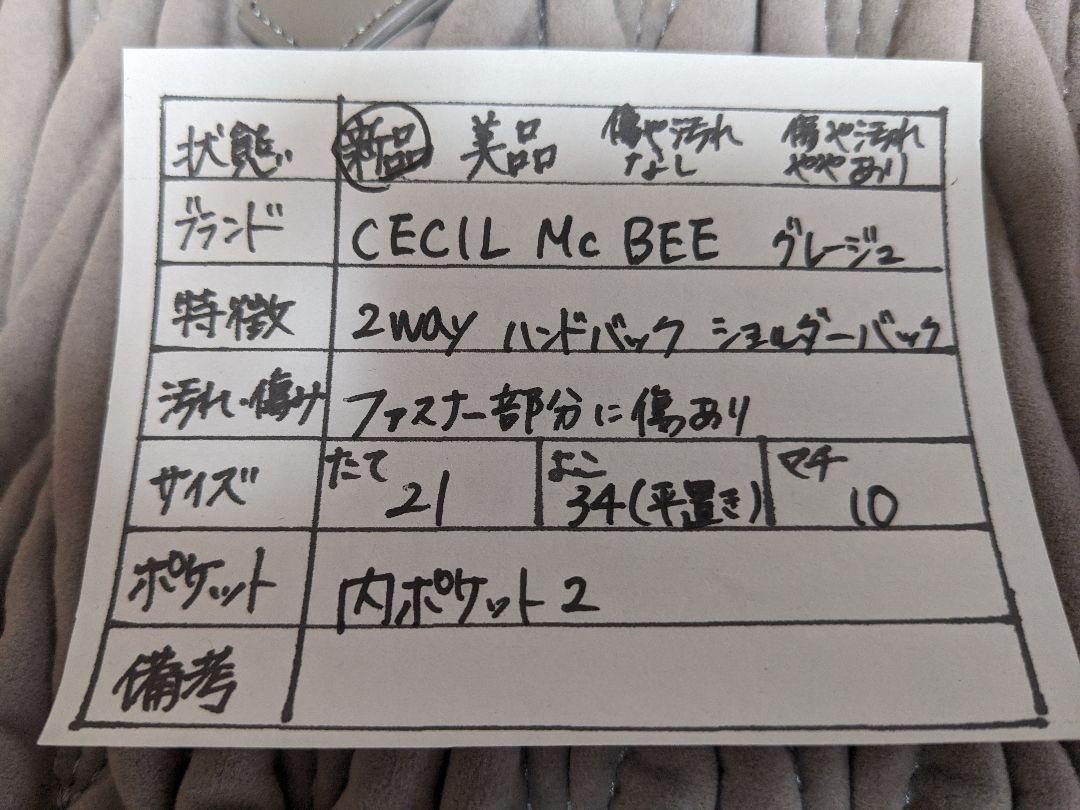 状態 新品 美品 傷や汚れ なし 傷や汚れ ややあり
ブランド CECIL Mc BEE グレージュ
特徴 2way ハンドバック ショルダーバック
汚れ・傷み ファスナー部分に傷あり
サイズ たて 21 よこ 34(平置き) マチ 10
ポケット 内ポケット2
備考